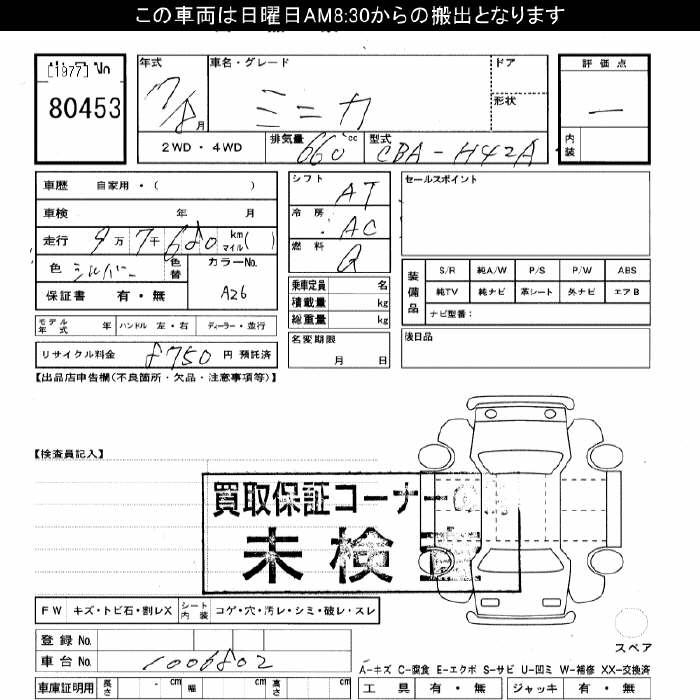 この車両は日曜日AM8:30からの搬出となります
[1977] No
80453
年式
17/8月
車名・グレード
ミニカ
ドア
形状
評価点
―
内装
2WD・4WD
排気量
660cc
型式
CBA-H42A
車歴 自家用・( )
車検 年 月
走行 9万7千680 km マイル( )
色 シルバー 色替
カラーNo.
A26
保証書 有・無
シフト AT
冷房 AC
燃料 G
乗車定員 名
積載量 kg
総重量 kg
名変期限
月 日
セールスポイント
装備品
S/R 純A/W P/S P/W ABS
純TV 純ナビ 革シート 外ナビ エアB
ナビ型番:
後日品
モデル年式 年 ハンドル 左・右 ディーラー・並行
リサイクル料金 8750 円 預託済
【出品店申告欄(不良箇所・欠品・注意事項等)】
【検査員記入】
買取保証コーナー
未検
FW キズ・トビ石・割レX シート内装 コゲ・穴・汚レ・シミ・破レ・スレ
登録 No.
車台 No. 1006802
スペア
A-キズ C-腐食 E-エクボ S-サビ U-凹ミ W-補修 XX-交換済
車庫証明用 長さ cm 幅 cm 高さ cm
工具 有・無 ジャッキ 有・無